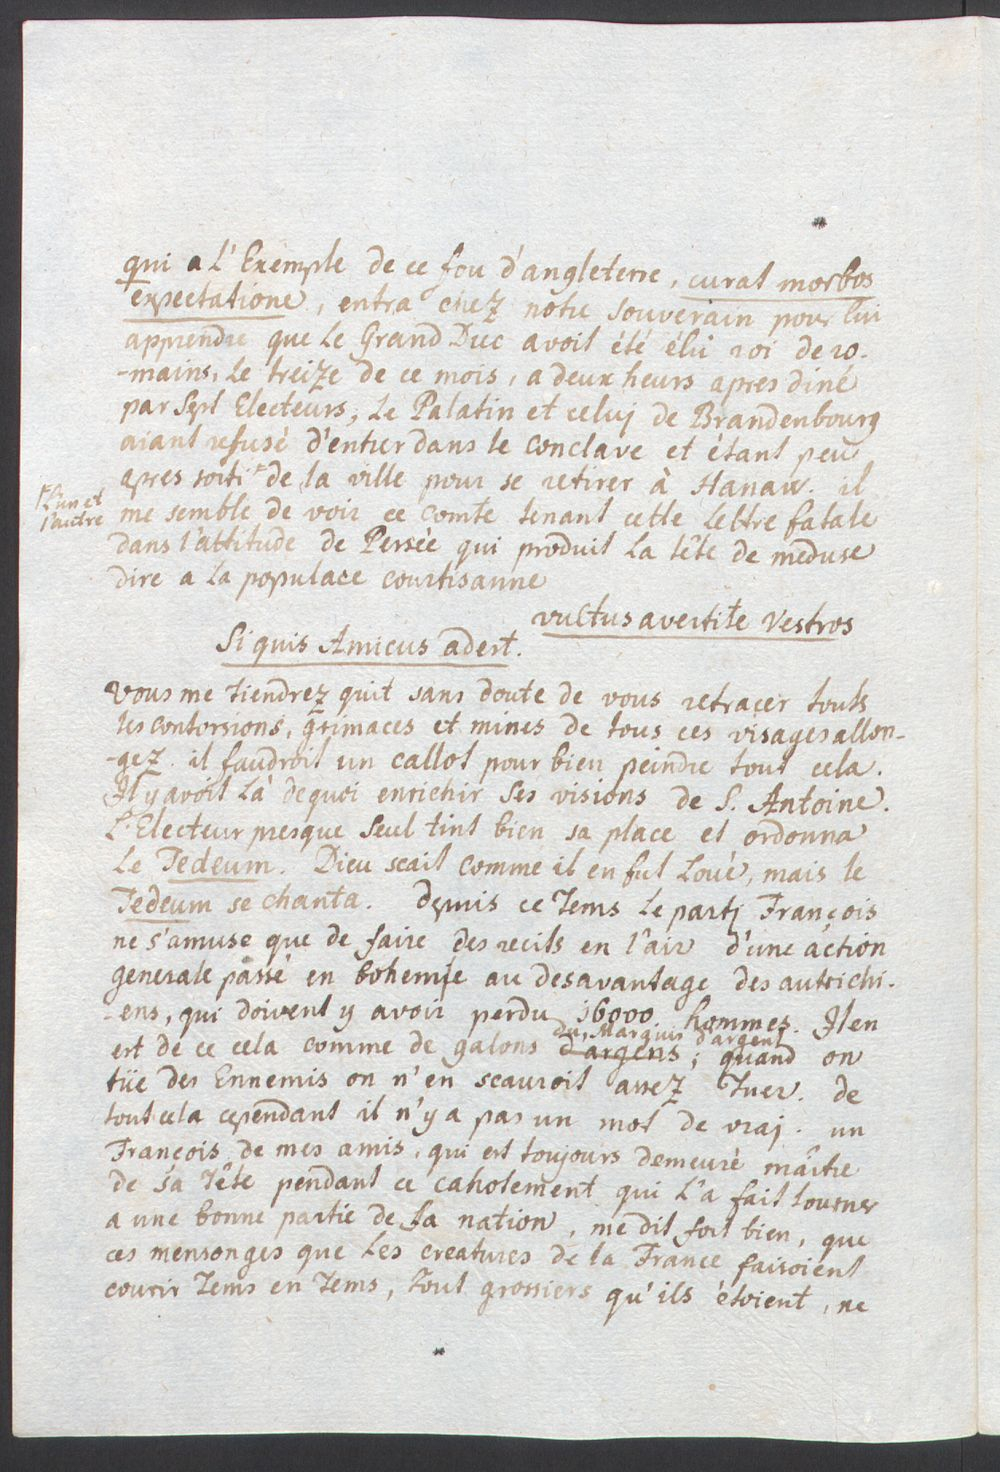 qui a L'Exemple de ce fou d'angleterre, curat morbos
expectatione, entra chez notre souverain pour lui
apprendre que Le Grand Duc avoit été élû roi de ro-
-mains, Le treize de ce mois, a deux heurs apres diné
par sept Electeurs, Le Palatin et celuj de Brandenbourg
aiant refusé d'entrer dans le conclave et étant peu
apres sorti de la ville pour se retirer à Hanaw. il
L'un et
l'autre
me semble de voir ce comte tenant cette Lettre fatale
dans l'attitude de Persée qui produit La tête de meduse
dire a La populace courtisanne
vultus avertite Vestros
Si quis Amicus adest.
Vous me tiendrez quit sans doute de vous retracer touts
les contorsions, grimaces et mines de tous ces visages allon-
-gez. il faudroit un callot pour bien peindre tout cela.
Il y avoit Là dequoi enrichir ses visions de S. Antoine.
L'Electeur presque seul tint bien sa place et ordonna
Le Tedeum. Dieu scait comme il en fut Loué, mais le
Tedeum se chanta. Depuis ce Tems Le partj François
ne s'amuse que de faire des recits en l'air d'une action
generale passé en bohemie au desavantage des autrichi-
-ens, qui doivent y avoir perdu 16000 hommes. Il en
du Marquis d'argent
est de ce cela comme de galons d'argens; quand on
tüe des Ennemis on n'en scauroit assez Tuer. de
tout cela cependant il n'y a pas un mot de vraj. un
François de mes amis, qui est toujours demeuré maître
de sa Tête pendant ce cahotement qui L'a fait tourner
a une bonne partie de sa nation, me dit fort bien, que
ces mensonges que Les creatures de la France faisoient
courir Tems en Tems, tout grossiers qu'ils étoient, ne